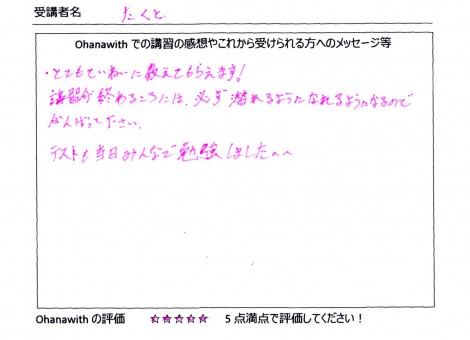 受講者名 たくと
Ohanawith での講習の感想やこれから受けられる方へのメッセージ等
・とてもていねいに教えてもらえます!
講習が終わるころには、必ず潜れるようになれるようなるので
がんばって下さい。
テストも当日みんなで勉強しました^^
Ohanawith の評価 ☆☆☆☆☆ 5 点満点で評価してください!